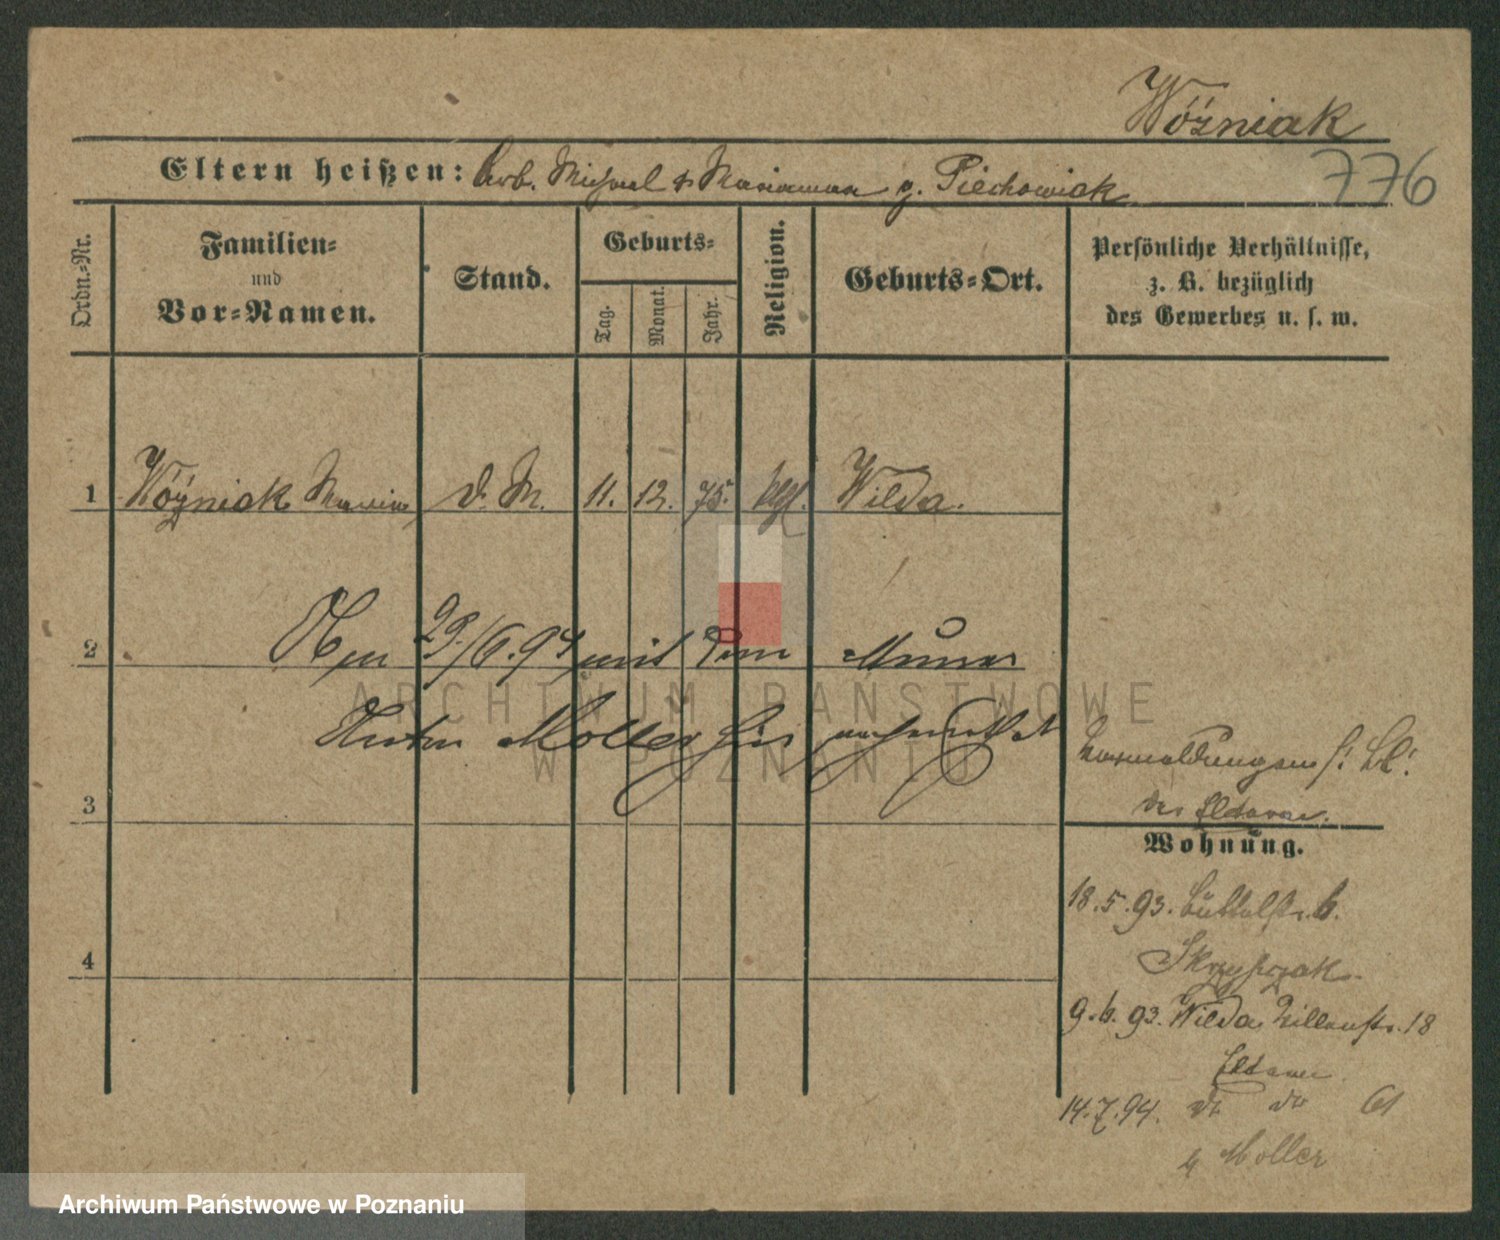 Wóźniak
776
Eltern heißen: Arb. Michael & Marianna g. Piechowiak
Ordn.-Nr.
Familien-
und
Vor-Namen.
Stand.
Geburts-
Tag.
Monat.
Jahr.
Religion.
Geburts-Ort.
Persönliche Verhältnisse,
z. B. bezüglich
des Gewerbes u. s. w.
1 Wóźniak Maria d. M. 11. 12. 75. kgl. Wilda.
2 Am 29/6. 94 mit dem Maurer
Anton Moller hier
3
der Eltern.
Wohnung.
18.5.93. Büttelstr. 6.
4
Skrzypczak
9.6.93. Wilda 18
Eltern
14.7.94. do do 61
b. Moller
ARCHIWUM PAŃSTWOWE
W POZNANIU
Archiwum Państwowe w Poznaniu